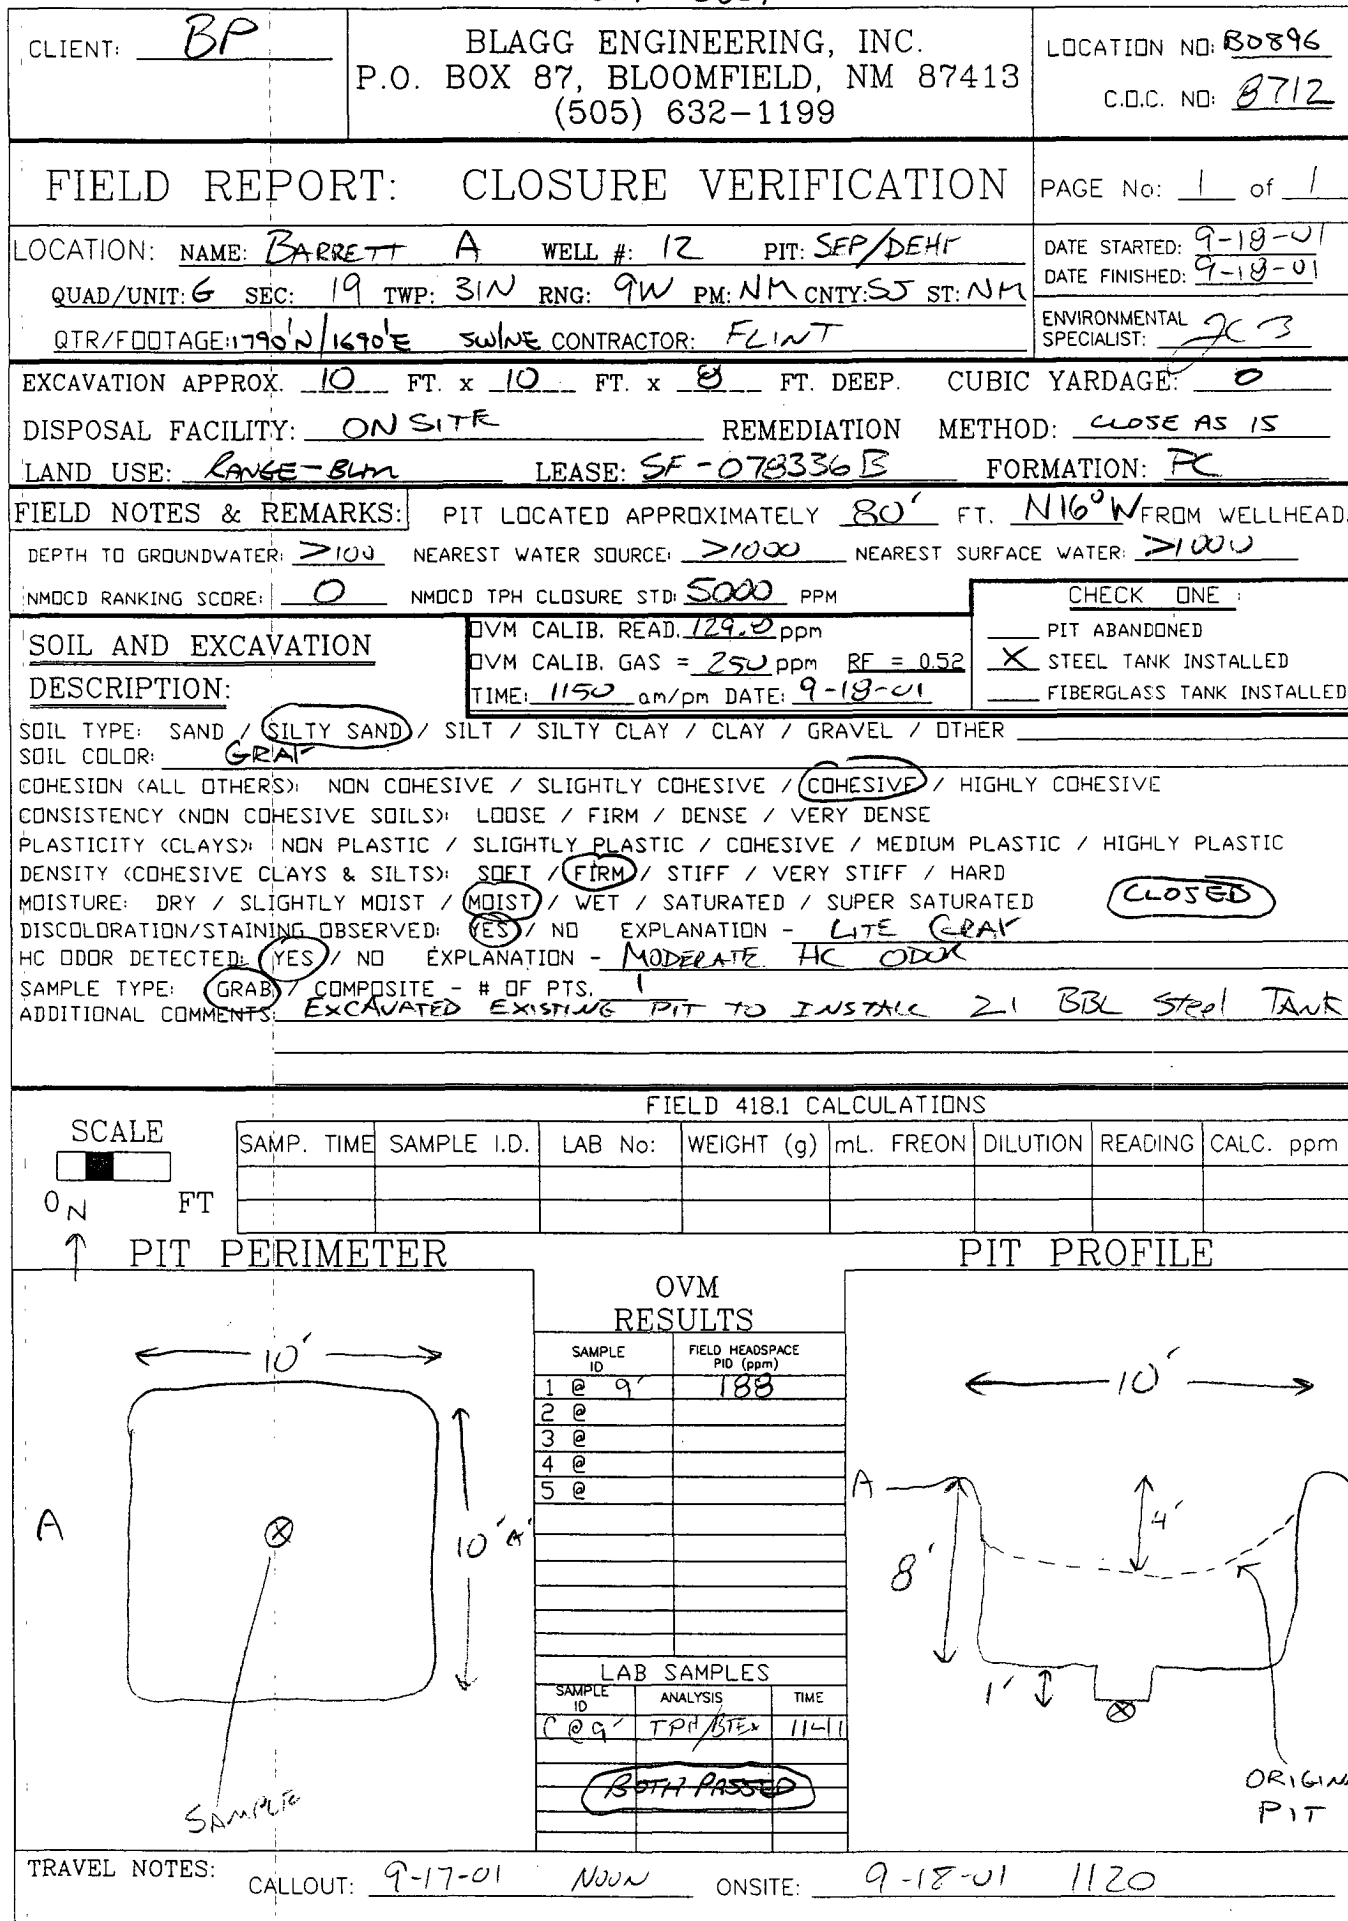 CLIENT: BP
BLAGG ENGINEERING, INC.
P.O. BOX 87, BLOOMFIELD, NM 87413
(505) 632-1199
LOCATION NO: B0896
C.O.C. NO: 8712
FIELD REPORT: CLOSURE VERIFICATION
PAGE No: 1 of 1
LOCATION: NAME: BARRETT A WELL #: 12 PIT: SEP/DEHY
QUAD/UNIT: G SEC: 19 TWP: 31N RNG: 9W PM: NM CNTY: SJ ST: NM
QTR/FOOTAGE: 1790'N/1690'E SW/NE CONTRACTOR: FLINT
DATE STARTED: 9-18-01
DATE FINISHED: 9-18-01
ENVIRONMENTAL
SPECIALIST:
EXCAVATION APPROX. 10 FT. x 10 FT. x 8 FT. DEEP. CUBIC YARDAGE: 0
DISPOSAL FACILITY: ON SITE REMEDIATION METHOD: CLOSE AS IS
LAND USE: RANGE-BLM LEASE: SF-078336B FORMATION: PC
FIELD NOTES & REMARKS: PIT LOCATED APPROXIMATELY 80' FT. N16°W FROM WELLHEAD.
DEPTH TO GROUNDWATER: >100 NEAREST WATER SOURCE: >1000 NEAREST SURFACE WATER: >1000
NMOCD RANKING SCORE: 0 NMOCD TPH CLOSURE STD: 5000 PPM
CHECK ONE :
PIT ABANDONED
X STEEL TANK INSTALLED
FIBERGLASS TANK INSTALLED
SOIL AND EXCAVATION
DESCRIPTION:
OVM CALIB. READ. 129.0 ppm
OVM CALIB. GAS = 250 ppm RF = 0.52
TIME: 1150 am/pm DATE: 9-18-01
SOIL TYPE: SAND / SILTY SAND / SILT / SILTY CLAY / CLAY / GRAVEL / OTHER
SOIL COLOR: GRAY
COHESION (ALL OTHERS): NON COHESIVE / SLIGHTLY COHESIVE / COHESIVE / HIGHLY COHESIVE
CONSISTENCY (NON COHESIVE SOILS): LOOSE / FIRM / DENSE / VERY DENSE
PLASTICITY (CLAYS): NON PLASTIC / SLIGHTLY PLASTIC / COHESIVE / MEDIUM PLASTIC / HIGHLY PLASTIC
DENSITY (COHESIVE CLAYS & SILTS): SOFT / FIRM / STIFF / VERY STIFF / HARD
MOISTURE: DRY / SLIGHTLY MOIST / MOIST / WET / SATURATED / SUPER SATURATED CLOSED
DISCOLORATION/STAINING OBSERVED: YES / NO EXPLANATION - LITE GRAY
HC ODOR DETECTED: YES / NO EXPLANATION - MODERATE HC ODOR
SAMPLE TYPE: GRAB / COMPOSITE - # OF PTS. 1
ADDITIONAL COMMENTS: EXCAVATED EXISTING PIT TO INSTALL 21 BBL Steel TANK
FIELD 418.1 CALCULATIONS
SCALE
0 FT
SAMP. TIME SAMPLE I.D. LAB No: WEIGHT (g) mL. FREON DILUTION READING CALC. ppm
N
PIT PERIMETER
PIT PROFILE
OVM
RESULTS
SAMPLE ID FIELD HEADSPACE PID (ppm)
1 @ 9' 188
2 @
3 @
4 @
5 @
10'
10'
A
A'
SAMPLE
LAB SAMPLES
SAMPLE ID ANALYSIS TIME
C @ 9' TPH/BTEX 1141
BOTH PASSED
10'
A
4'
8'
1'
ORIGINA
PIT
TRAVEL NOTES: CALLOUT: 9-17-01 NOON ONSITE: 9-18-01 1120